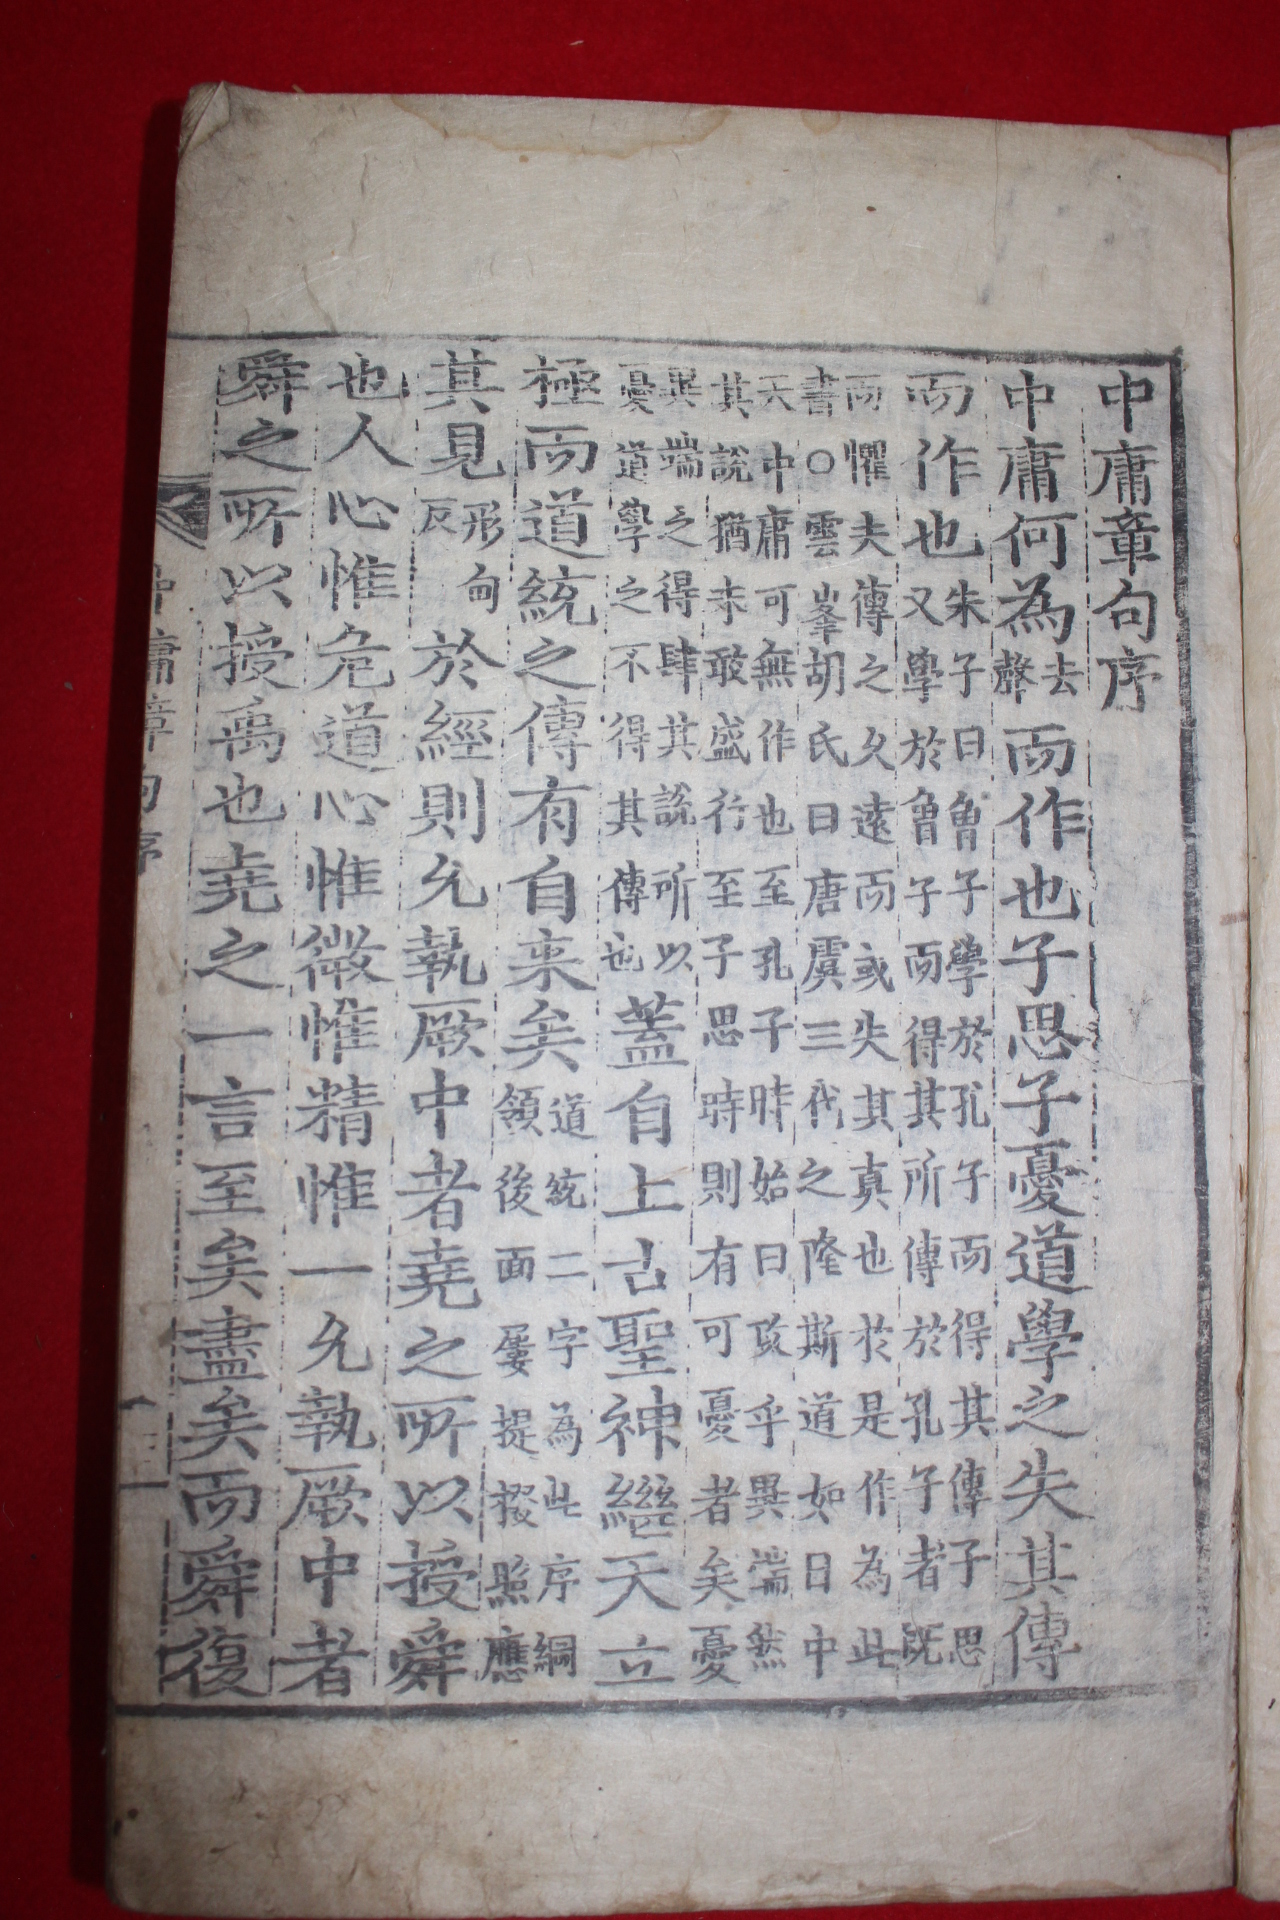 中庸章句序
中庸何為去聲而作也子思子憂道學之失其傳
而作也朱子曰曾子學於孔子而得其傳子思
又學於曾子而得其所傳於孔子者既
而懼夫傳之久遠而或失其真也於是作為此
書○雲峯胡氏曰唐虞三代之隆斯道如日中
天中庸可無作也至孔子時始曰攻乎異端然
其說猶未敢盛行至子思時則有可憂者矣憂
異端之得肆其說所以
憂道學之不得其傳也蓋自上古聖神繼天立
極而道統之傳有自来矣道統二字為此序綱
領後面屢提掇照應
其見形甸反於經則允執厥中者堯之所以授舜
也人心惟危道心惟微惟精惟一允執厥中者
舜之所以授禹也堯之一言至矣盡矣而舜復
中庸章句序